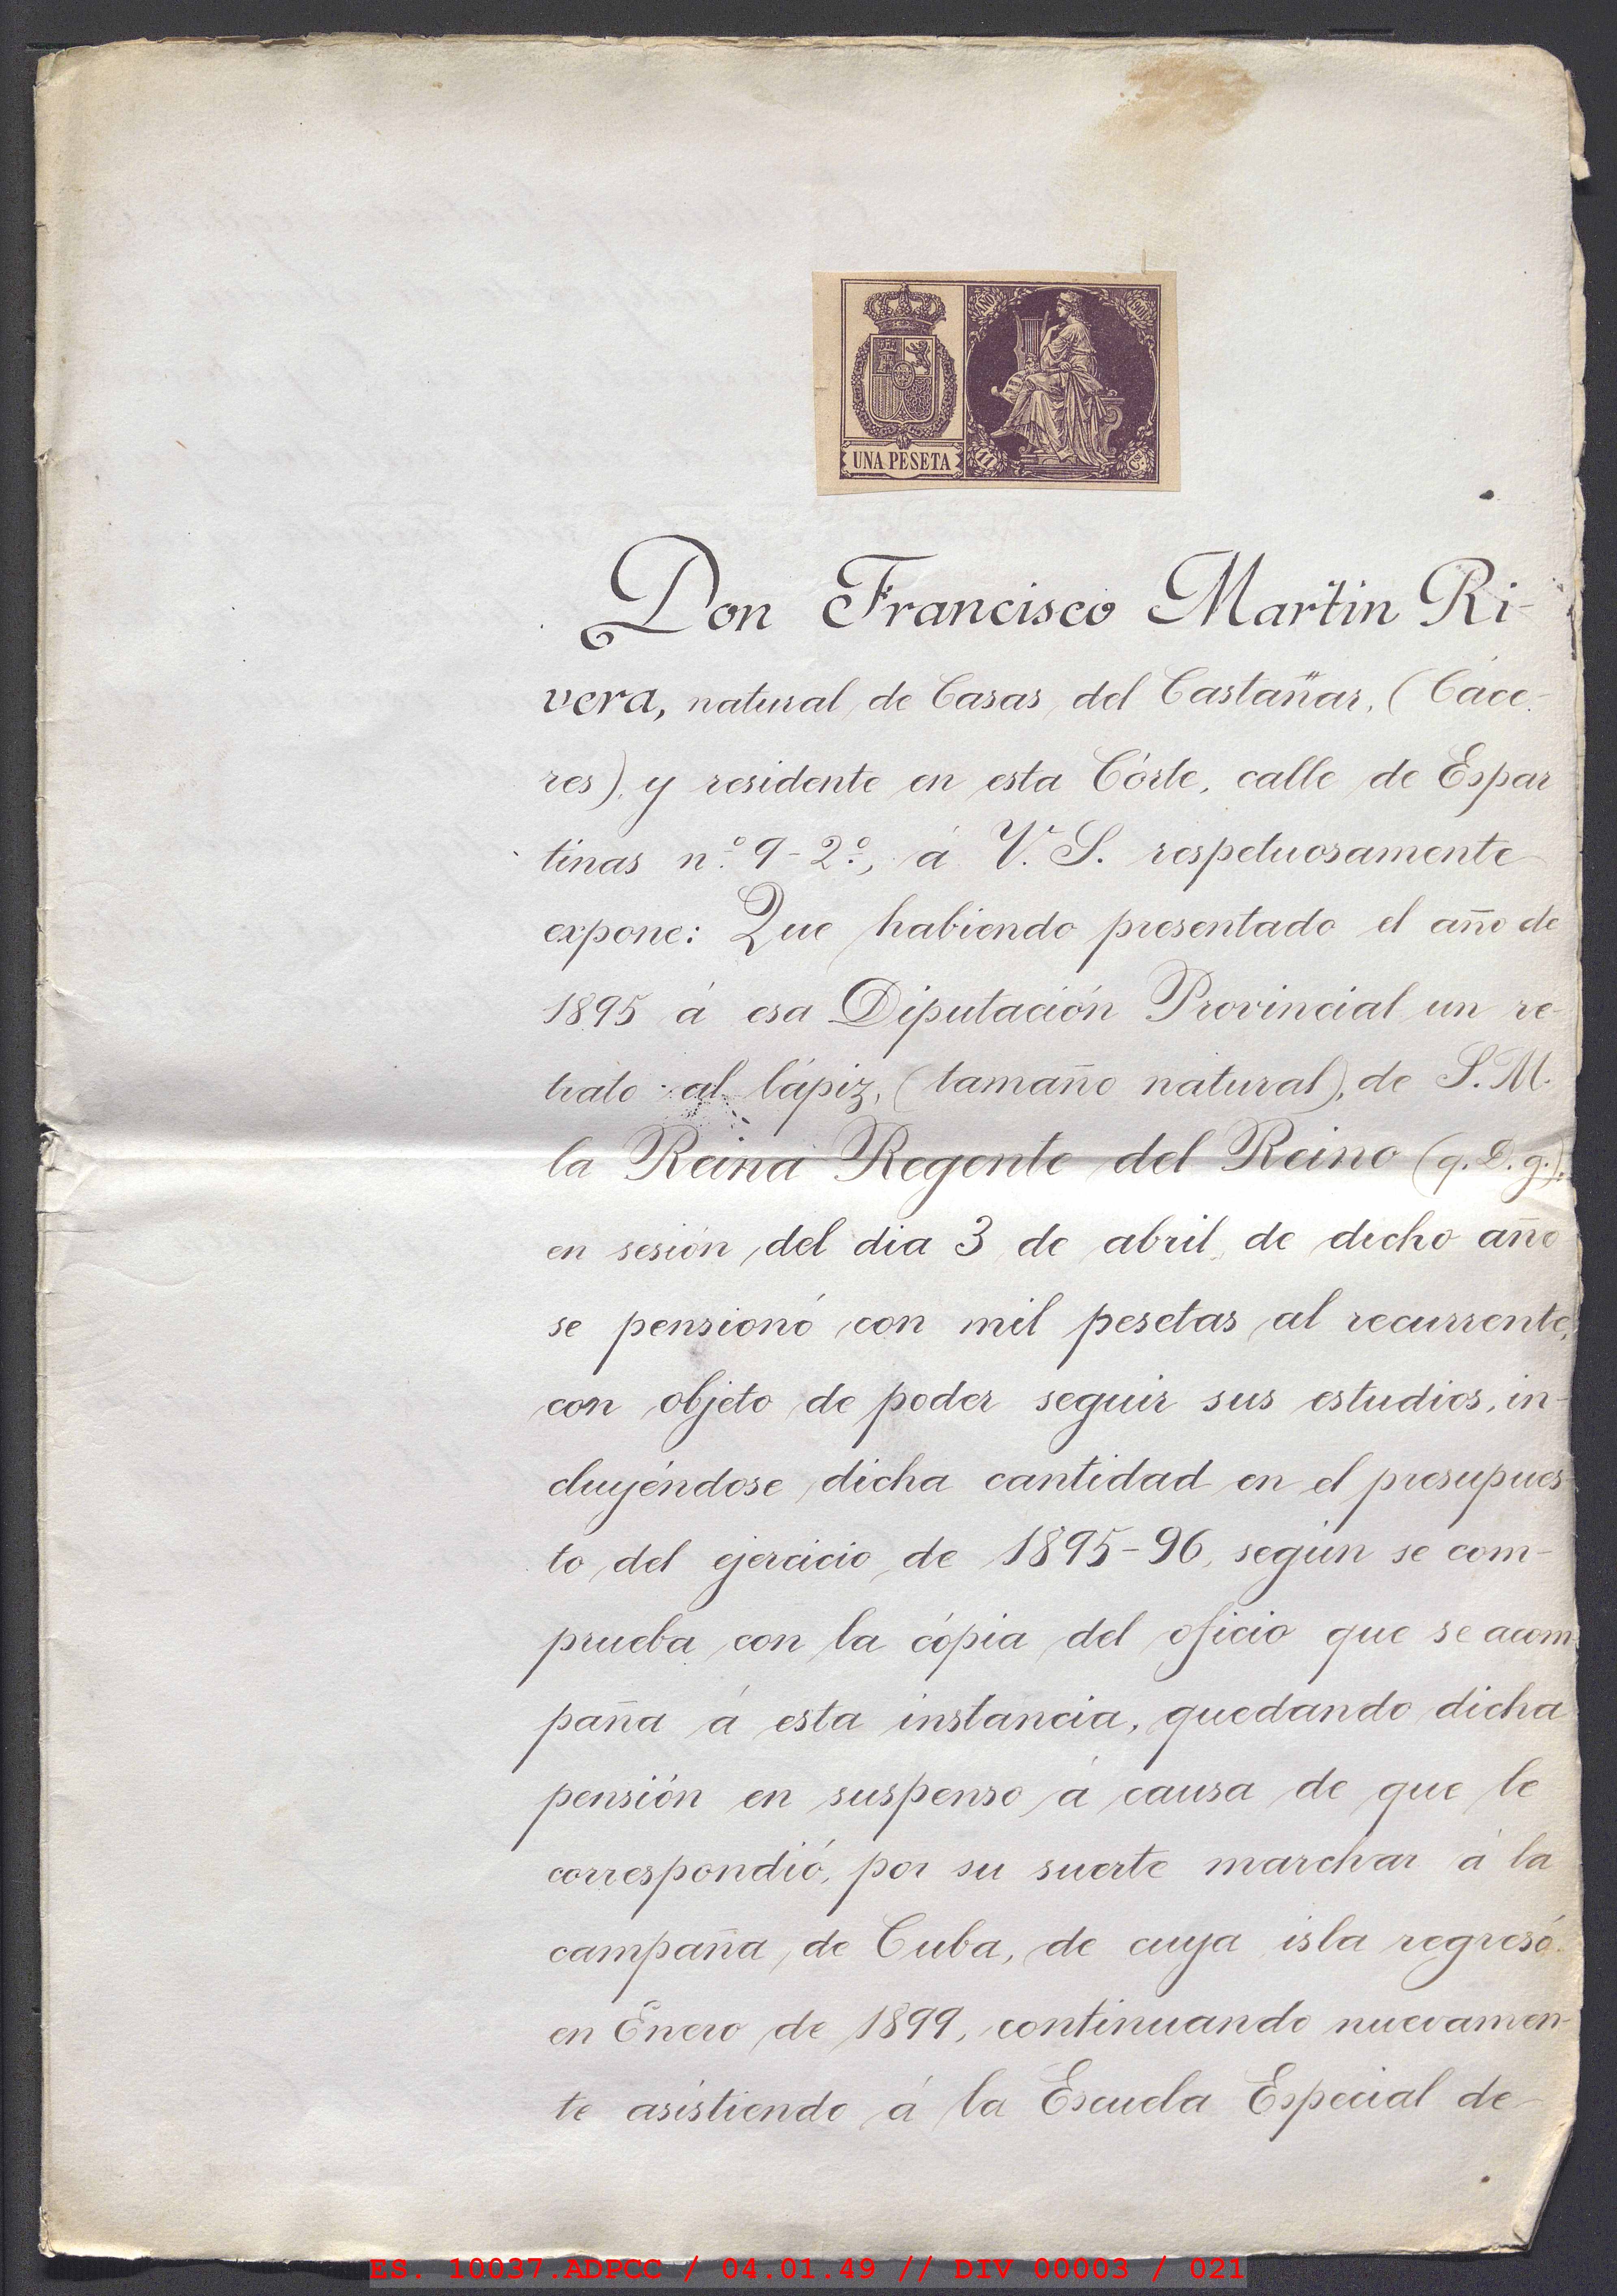 UNA PESETA
Don Francisco Martin Ri-
vera, natural de Casas del Castañar, (Cáce-
res), y residente en esta Córte, calle de Espar
tinas n.º 9-2.º, á V. S. respetuosamente
expone: Que habiendo presentado el año de
1895 á esa Diputación Provincial un re-
trato al lápiz, (tamaño natural), de S. M.
la Reina Regente del Reino (q. D. g.),
en sesión del dia 3 de abril de dicho año
se pensionó con mil pesetas al recurrente,
con objeto de poder seguir sus estudios, in-
cluyéndose dicha cantidad en el presupues-
to del ejercicio de 1895-96, según se com-
prueba con la cópia del oficio que se acom
paña á esta instancia, quedando dicha
pensión en suspenso á causa de que le
correspondió, por su suerte marchar á la
campaña de Cuba, de cuya isla regresó
en Enero de 1899, continuando nuevamen-
te asistiendo á la Escuela Especial de
ES. 10037.ADPCC / 04.01.49 // DIV 00003 / 021